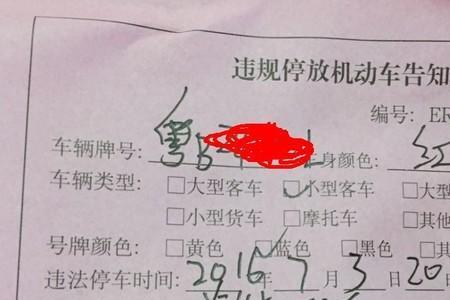 违规停放机动车告知
编号: ER
车辆牌号: 粤B 车身颜色: 红
车辆类型: □大型客车 ☑小型客车 □大型
□小型货车 □摩托车 □其他
号牌颜色: □黄色 ☑蓝色 □黑色 □其
违法停车时间: 2016年7月3日20